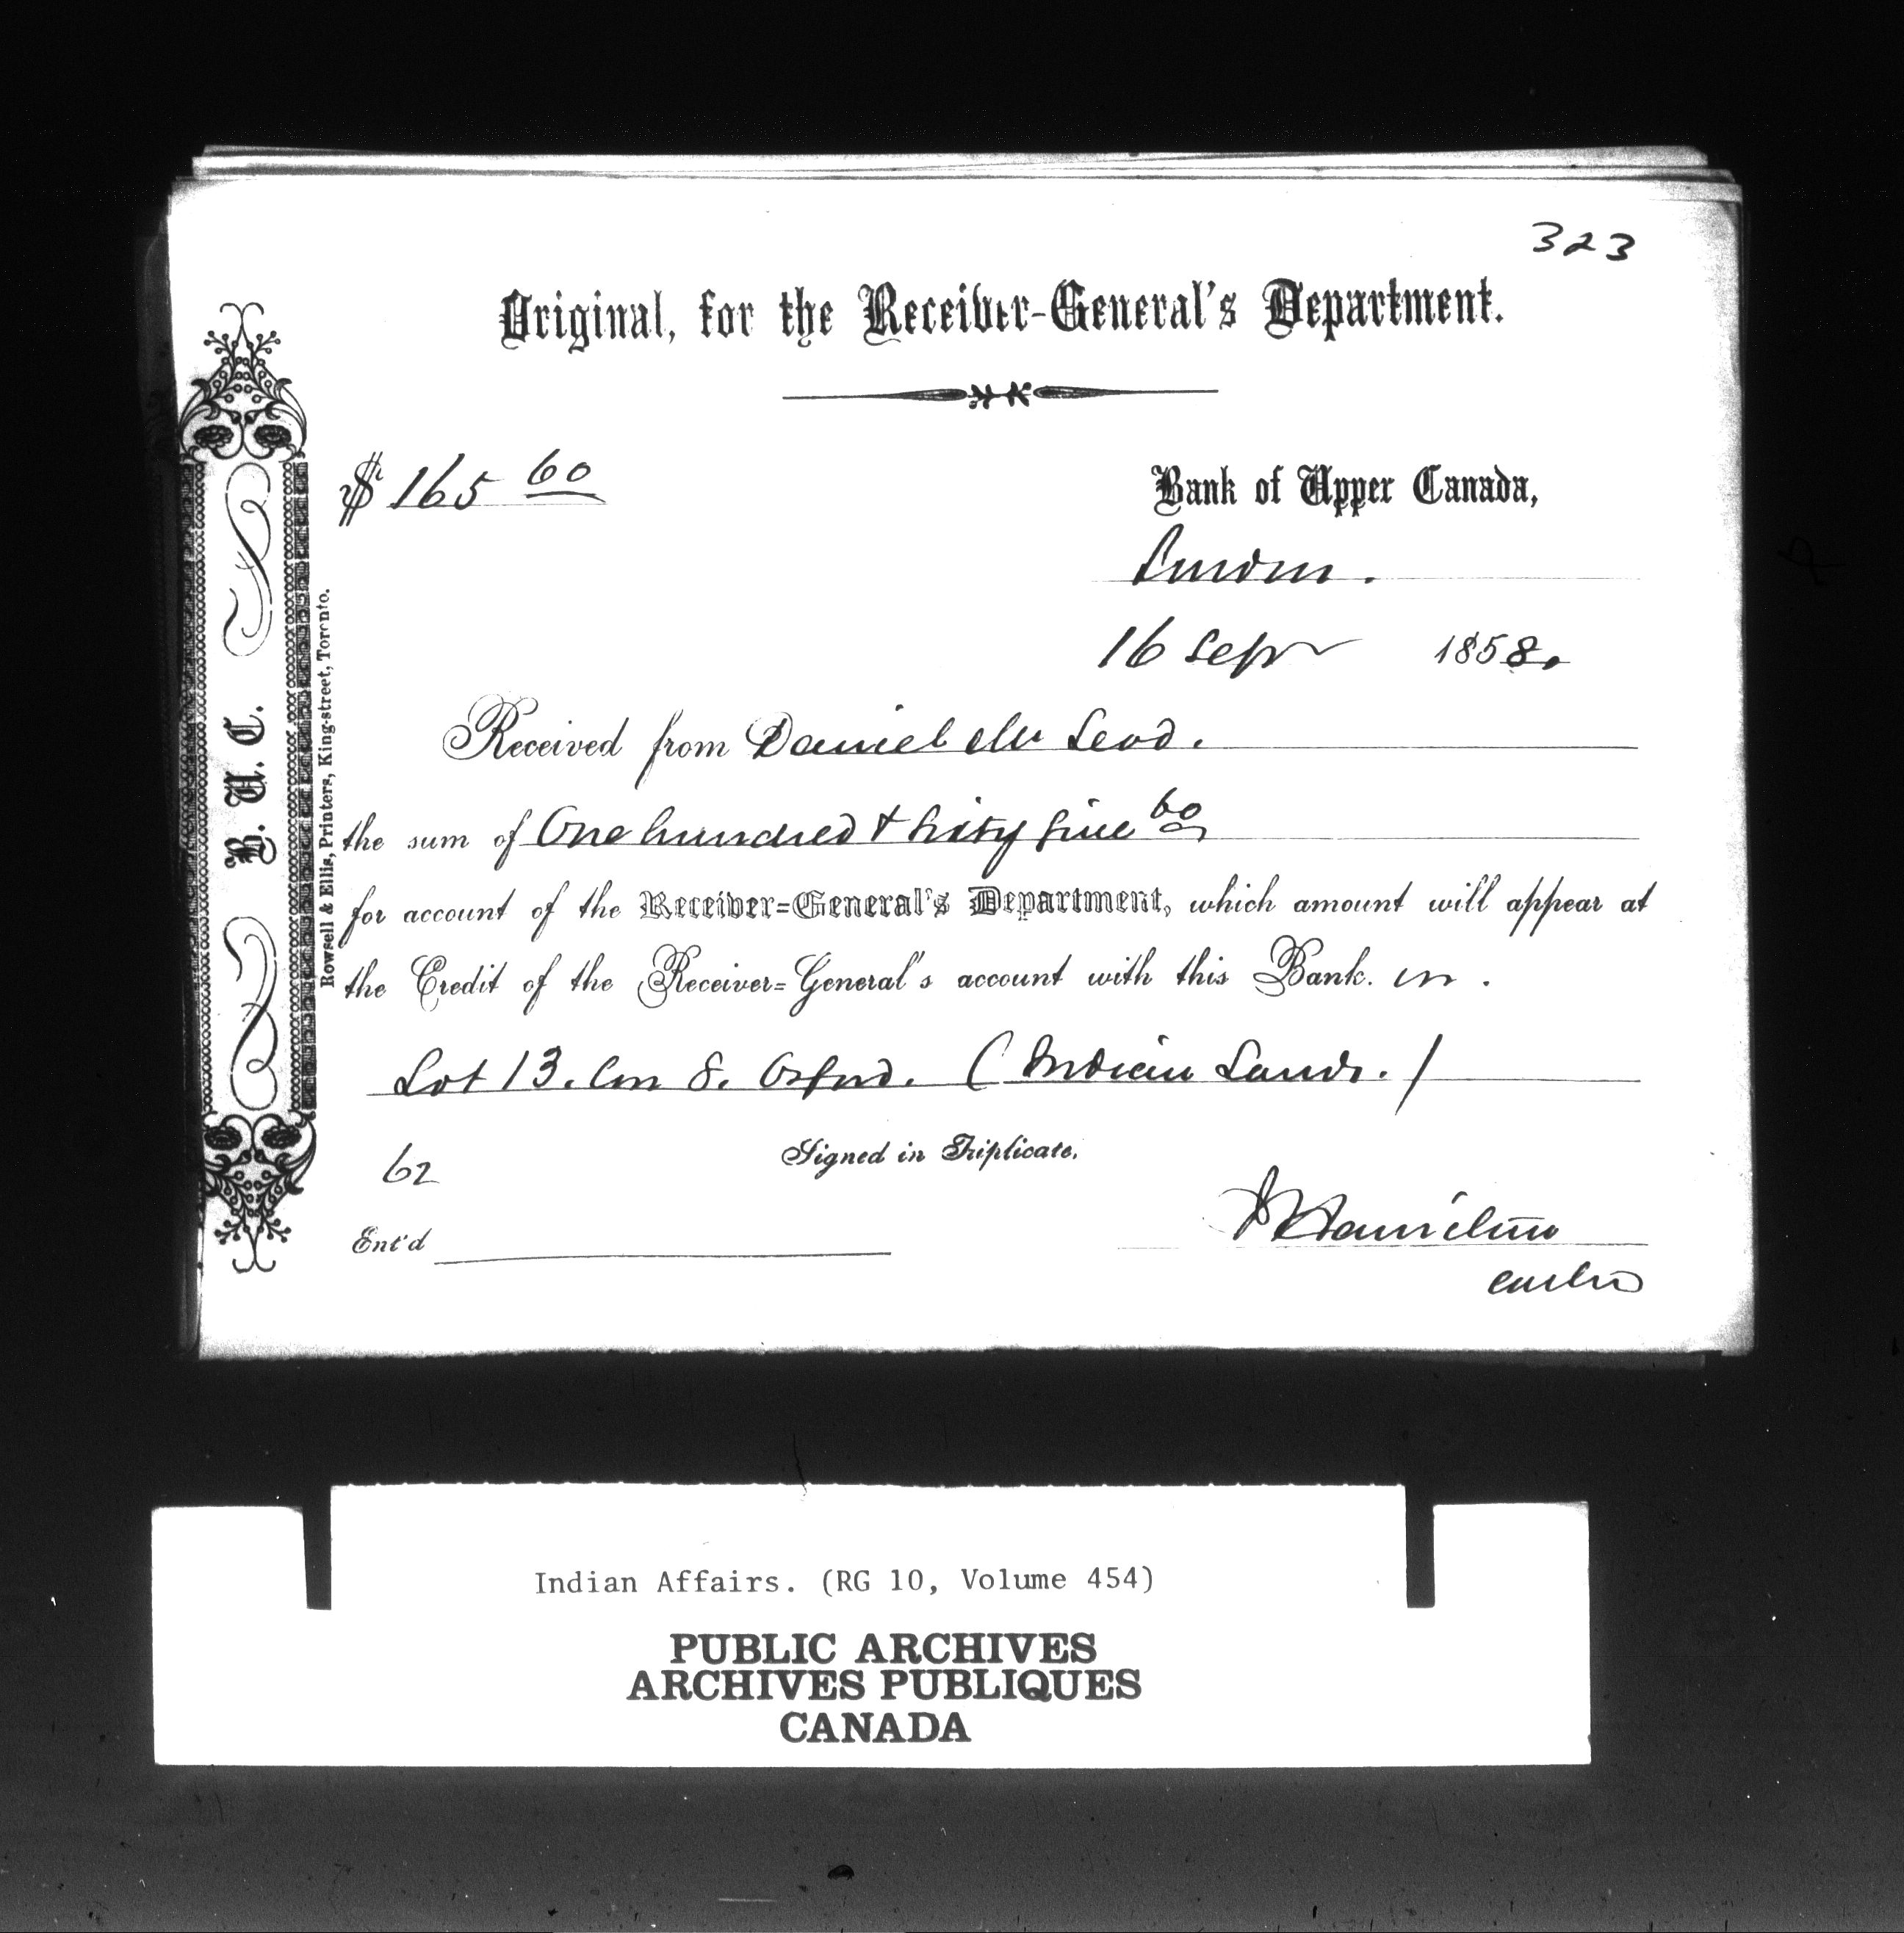 323
Original, for the Receiver-General's Department.
$ 165 60
Bank of Upper Canada,
London.
16 Sepr 1858.
Received from Daniel Mc Leod.
the sum of One hundred & sixty five 60
for account of the Receiver=General's Department, which amount will appear at
the Credit of the Receiver=General's account with this Bank. on .
Lot 13. Con 8. Orford. ( Indian Lands. )
62
Signed in Triplicate.
Hamilton
Ent'd
Cashr
B. U. C.
Rowsell & Ellis, Printers, King-street, Toronto.
Indian Affairs. (RG 10, Volume 454)
PUBLIC ARCHIVES
ARCHIVES PUBLIQUES
CANADA